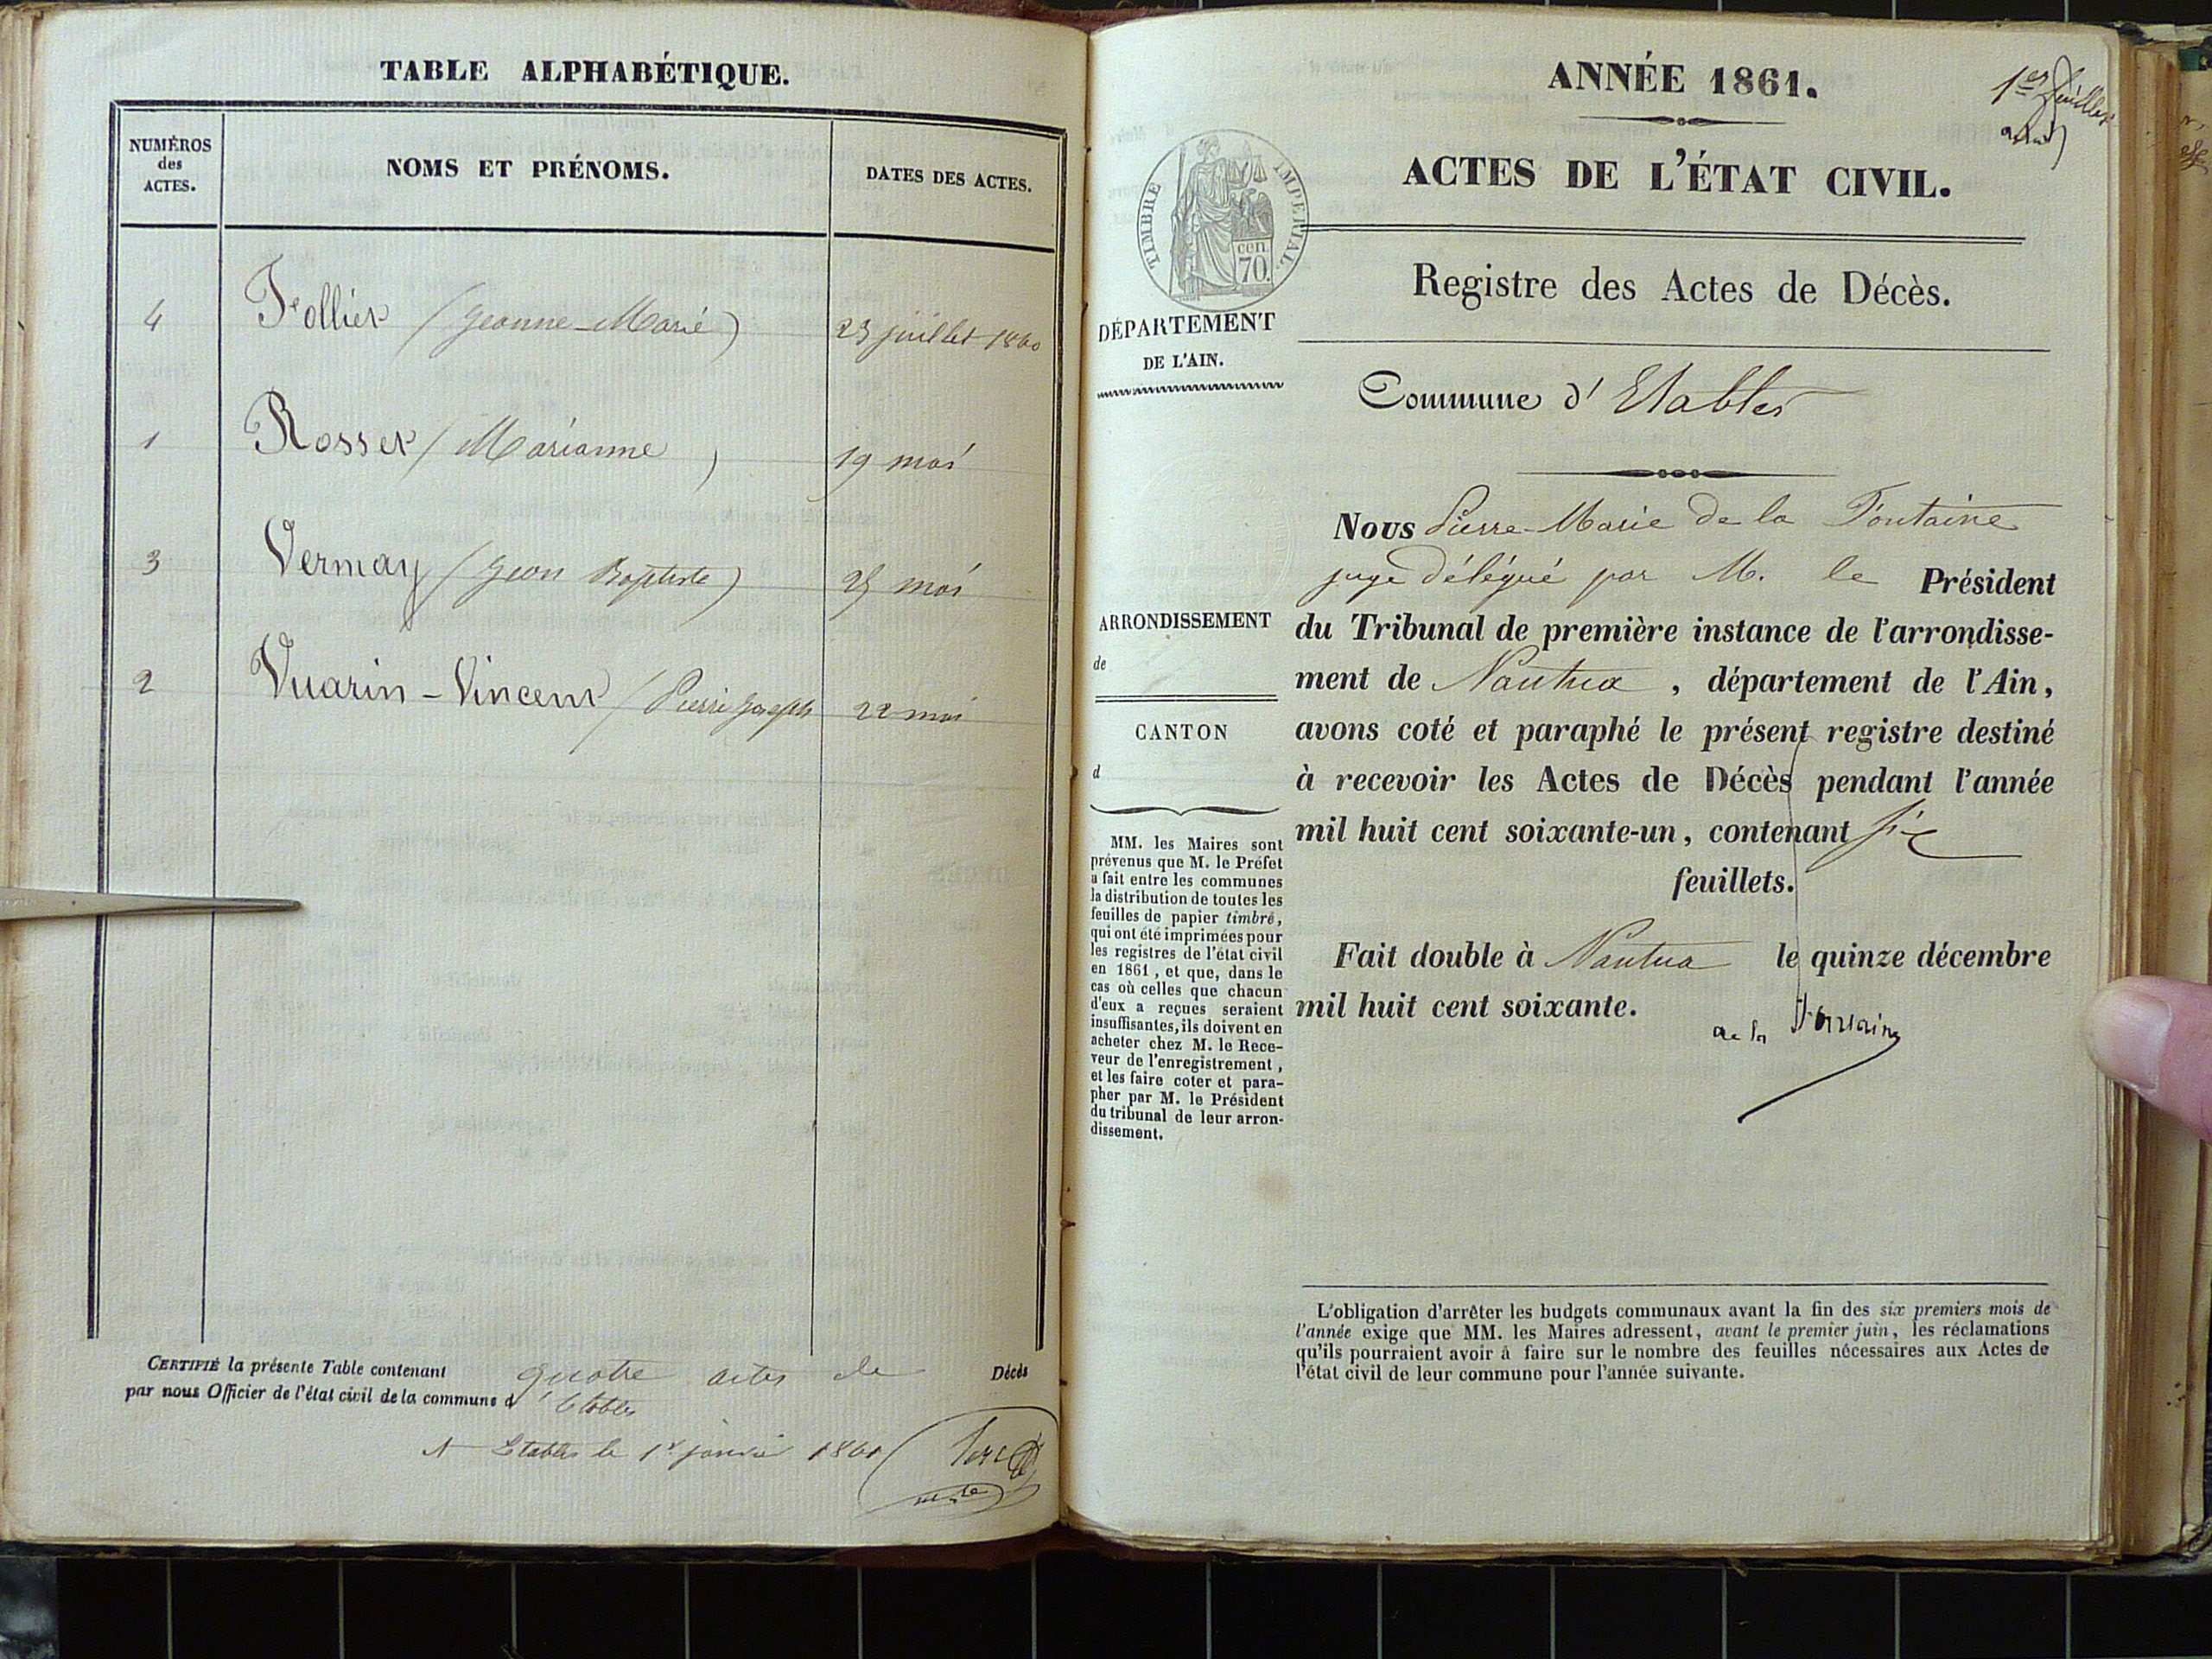 TABLE ALPHABÉTIQUE.
NUMÉROS
des
ACTES.
NOMS ET PRÉNOMS.
DATES DES ACTES.
4 Follier (Jeanne-Marie) 23 juillet 1860
1 Rosset (Marianne) 19 mai
3 Vermay (Jean Baptiste) 25 mai
2 Vuarin-Vincent (Pierre Joseph 22 mai
CERTIFIÉ la présente Table contenant quatre actes de Décès
par nous Officier de l'état civil de la commune d'Etables
A Etables le 1er janvier 1861
ANNÉE 1861.
1er feuillet
ACTES DE L'ÉTAT CIVIL.
TIMBRE IMPERIAL.
cen.
70.
Registre des Actes de Décès.
DÉPARTEMENT
DE L'AIN.
Commune d' Etables
Nous Pierre-Marie de la Fontaine
juge délégué par M. le Président
ARRONDISSEMENT
de
du Tribunal de première instance de l'arrondisse-
ment de Nantua, département de l'Ain,
avons coté et paraphé le présent registre destiné
à recevoir les Actes de Décès pendant l'année
mil huit cent soixante-un, contenant six
feuillets.
Fait double à Nantua le quinze décembre
mil huit cent soixante.
de la Fontaine
CANTON
d
MM. les Maires sont
prévenus que M. le Préfet
a fait entre les communes
la distribution de toutes les
feuilles de papier timbré,
qui ont été imprimées pour
les registres de l'état civil
en 1861, et que, dans le
cas où celles que chacun
d'eux a reçues seraient
insuffisantes, ils doivent en
acheter chez M. le Rece-
veur de l'enregistrement,
et les faire coter et para-
pher par M. le Président
du tribunal de leur arron-
dissement.
L'obligation d'arrêter les budgets communaux avant la fin des six premiers mois de
l'année exige que MM. les Maires adressent, avant le premier juin, les réclamations
qu'ils pourraient avoir à faire sur le nombre des feuilles nécessaires aux Actes de
l'état civil de leur commune pour l'année suivante.